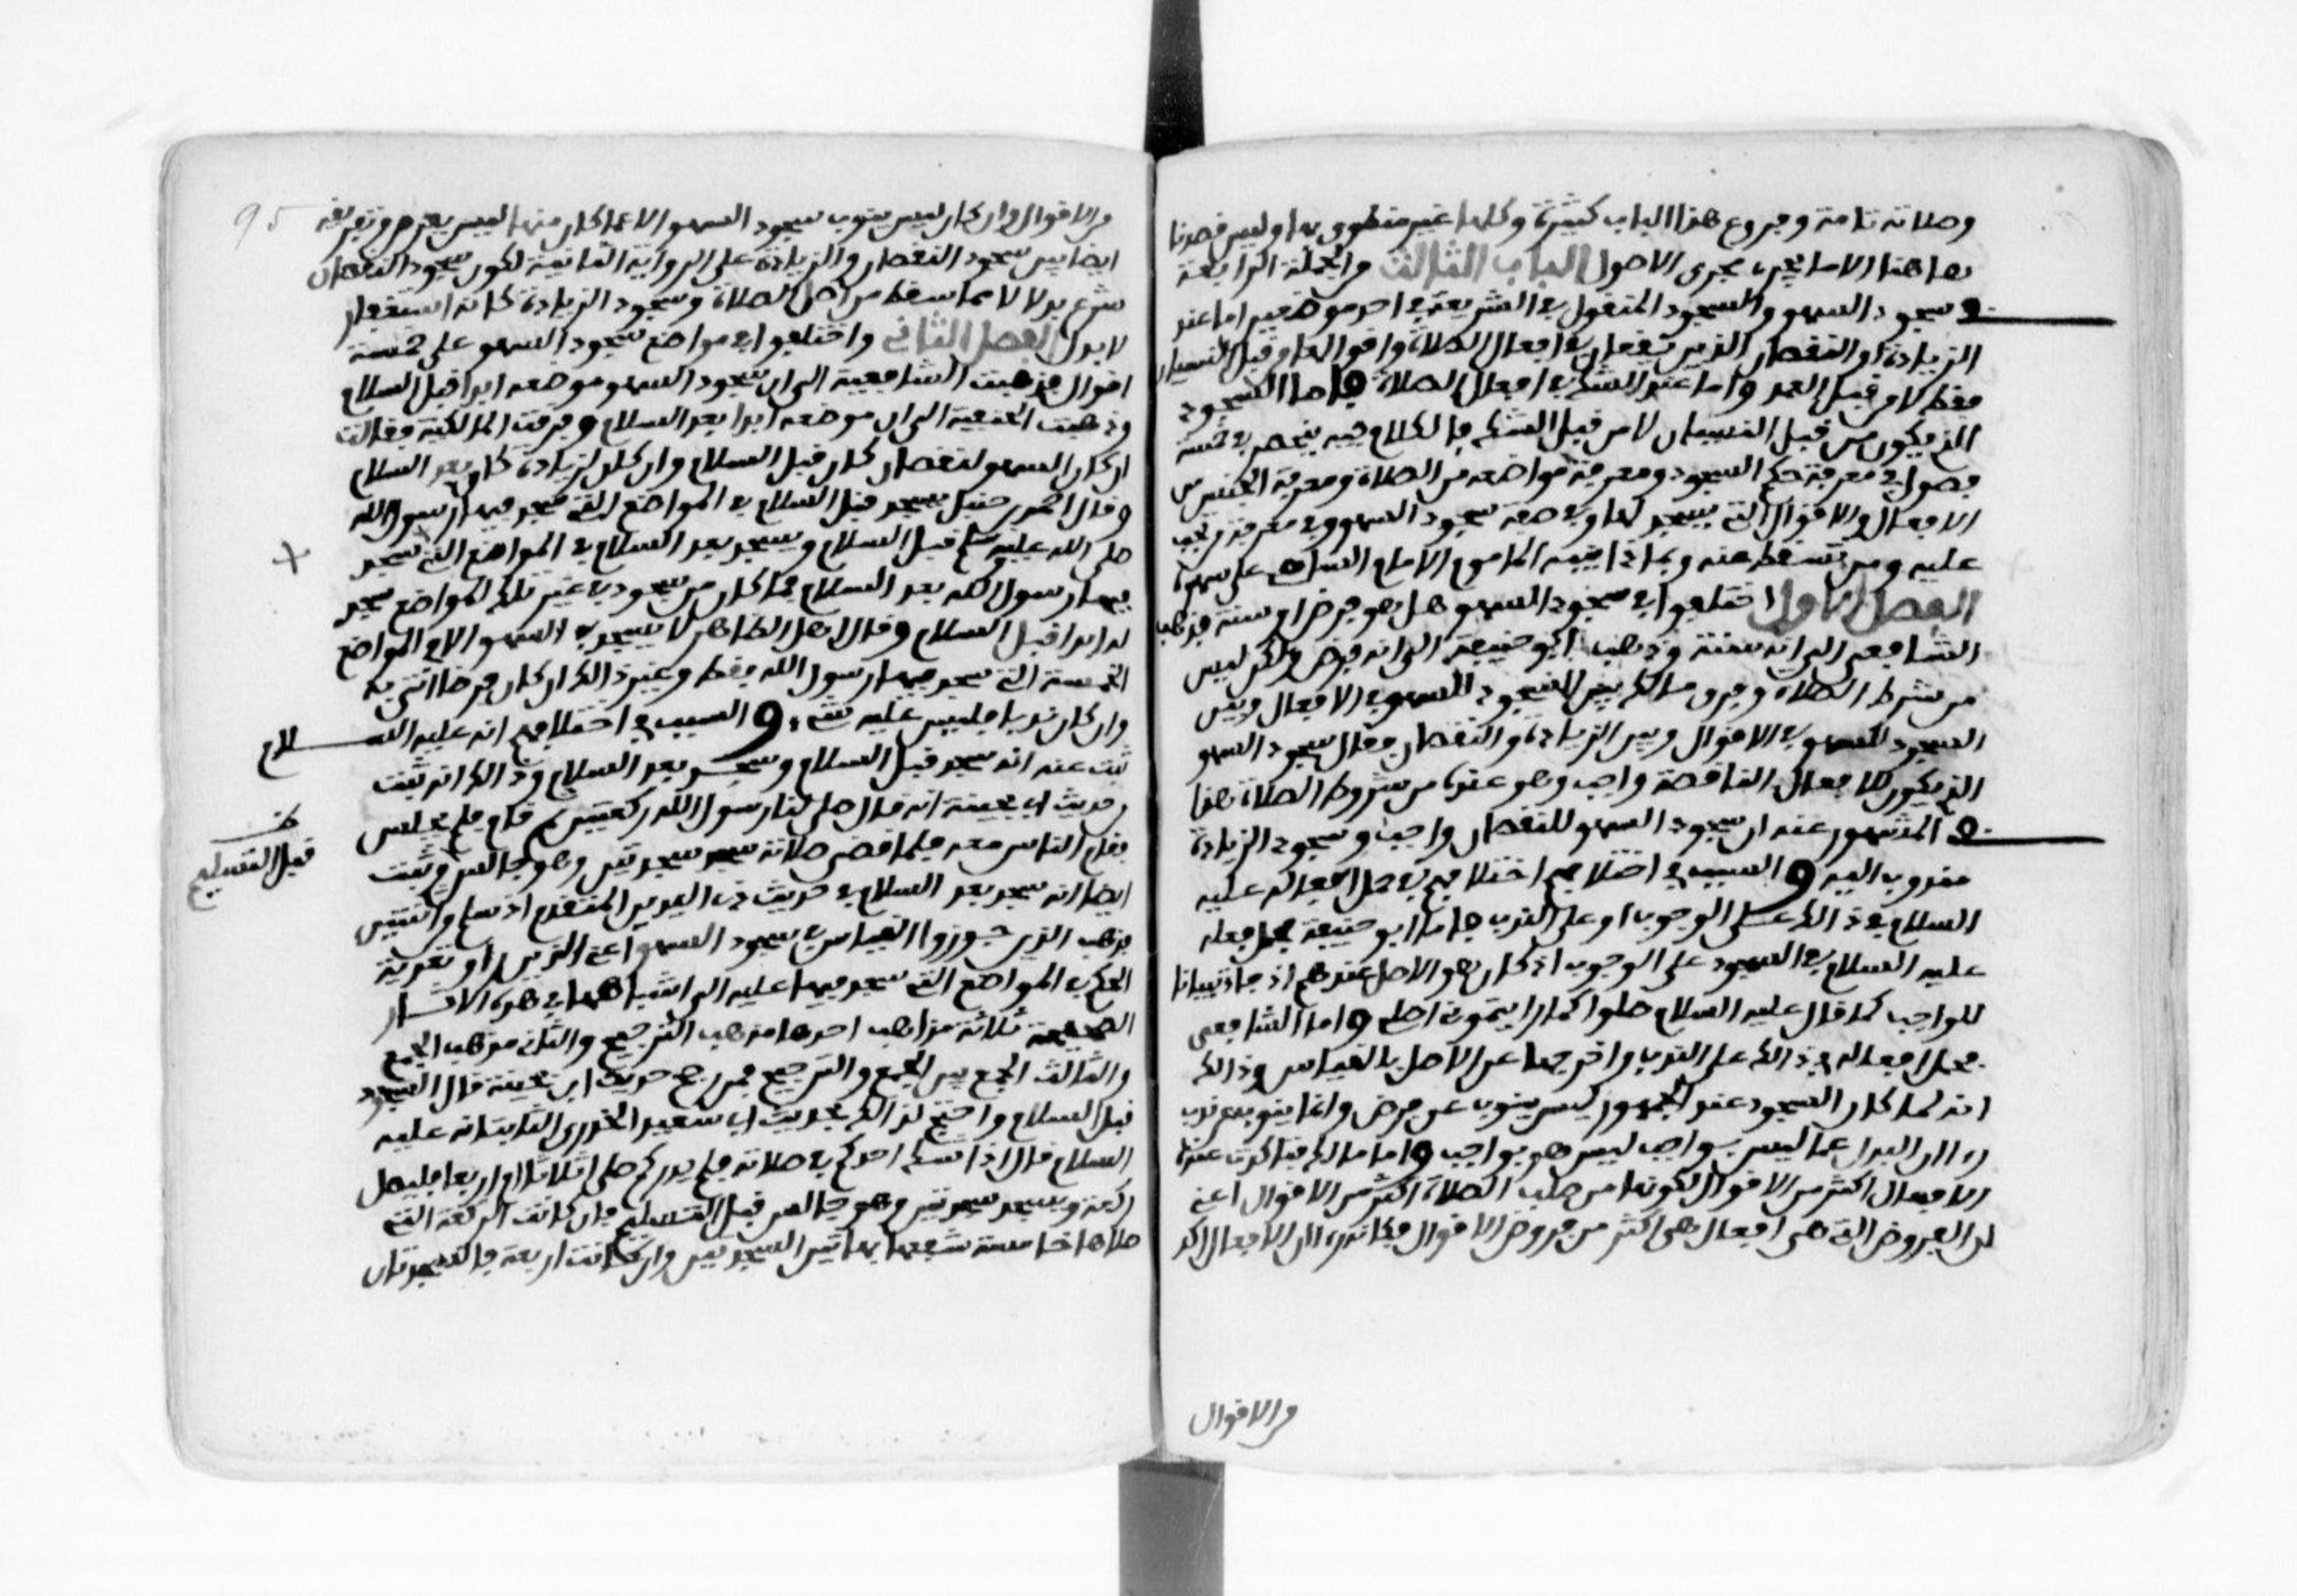 وصلاته تامة وفروع هذا الباب كثيرة وكلها غير منطوق بها وليس قصدنا
هاهنا الا ما يجرى مجرى الاصول الباب الثالث من الجملة الرابعة
في سجود السهو والسجود المنقول في الشريعة في احد موضعين اما عند
الزيادة او النقصان الذين يقعان في افعال الصلاة واقوالها من قبل النسيان
فقط لا من قبل العمد واما عند الشك في افعال الصلاة فاما السجود
الذي يكون من قبل النسيان لا من قبل الشك فالكلام فيه ينحصر في خمسة
فصول في معرفة حكم السجود ومعرفة مواضعه من الصلاة ومعرفة الجنس من
الافعال والاقوال التي يسجد لها وفي صفة سجود السهو وفي معرفة من يجب
عليه ومن يسقط عنه وبماذا ينبه الماموم الامام الساهي على سهوه
الفصل الاول اختلفوا في سجود السهو هل هو فرض او سنة فذهب
الشافعي الى انه سنة وذهب ابو حنيفة الى انه فرض ولكن ليس
من شرط الصلاة وفرق مالك بين السجود للسهو في الافعال وبين
السجود للسهو في الاقوال وبين الزيادة والنقصان فقال سجود السهو
الذي يكون للافعال الناقصة واجب وهو عنده من شروط الصلاة هذا
في المشهور عنه ان سجود السهو للنقصان واجب وسجود الزيادة
مندوب اليه والسبب في اختلافهم اختلافهم في حمل افعاله عليه
السلام في ذالك على الوجوب او على الندب فاما ابو حنيفة فحمل فعله
عليه السلام في السجود على الوجوب اذ كان هو الاصل عندهم اذ جا تبيانا
للواجب كما قال عليه السلام صلوا كما رايتموني اصلي واما الشافعي
فحمل افعاله في ذالك على الندب واخرجها عن الاصل بالقياس وذالك
انه لما كان السجود عند الجمهور ليس ينوب عن فرض وانما ينوب عن ندب
راى ان البدل عما ليس بواجب ليس هو بواجب واما مالك فتاكدت عنده
الافعال اكثر من الاقوال لكونها من صلب الصلاة اكثر من الاقوال اعني
ان الفروض التي هي افعال هي اكثر من فروض الاقوال فكانه راى ان الافعال اكد
من الاقوال
95
من الاقوال وان كان ليس ينوب سجود السهو الا عما كان منها ليس بفرض وتفريقه
ايضا بين سجود النقصان والزيادة على الرواية الثانية لكون سجود النقصان
شرع بدلا لا مما سقط من اجل الصلاة وسجود الزيادة كانه استغفار
لا بدل الفصل الثاني واختلفوا في مواضع سجود السهو على خمسة
اقوال فذهبت الشافعية الى ان سجود السهو موضعه ابدا قبل السلام
وذهبت الحنفية الى ان موضعه ابدا بعد السلام وفرقت المالكية فقالت
ان كان السهو لنقصان كان قبل السلام وان كان لزيادة كان بعد السلام
وقال احمد بن حنبل يسجد قبل السلام في المواضع التي سجد فيها رسول الله
صلى الله عليه وسلم قبل السلام ويسجد بعد السلام في المواضع التي سجد
فيها رسول الله بعد السلام فما كان من سجود في غير تلك المواضع سجد
له ابدا قبل السلام وقال اهل الظاهر لا يسجد في السهو الا في المواضع
الخمسة التي سجد فيها رسول الله فقط وغير ذالك ان كان فرضا اتى به
وان كان ندبا فليس عليه شيء والسبب في اختلافهم انه عليه السلام
ثبت عنه انه سجد قبل السلام وسجد بعد السلام وذالك انه ثبت
من حديث ابن بحينة انه قال صلى لنا رسول الله ركعتين ثم قام فلم يجلس
فقام الناس معه فلما قضى صلاته سجد سجدتين وهو جالس وثبت
قبل التسليم
ايضا انه سجد بعد السلام في حديث ذي اليدين المتقدم اذ سلم من اثنتين
فذهب الذين جوزوا القياس في سجود السهو اعني الذين راو تعدية
الحكم في المواضع التي سجد فيها عليه الى اشباهها في هذه الاثار
الصحيحة ثلاثة مذاهب احدها مذهب الترجيح والثاني مذهب الجمع
والثالث الجمع بين الجمع والترجيح فمن رجح حديث ابن بحينة قال السجود
قبل السلام واحتج لذالك بحديث ابي سعيد الخدري الثابت انه عليه
السلام قال اذا شك احدكم في صلاته فلم يدركم صلى اثلاثا ام اربعا فليصل
ركعة ويسجد سجدتين وهو جالس قبل التسليم فان كانت الركعة التي
صلاها خامسة شفعها بهاتين السجدتين وان كانت اربعة فالسجدتان